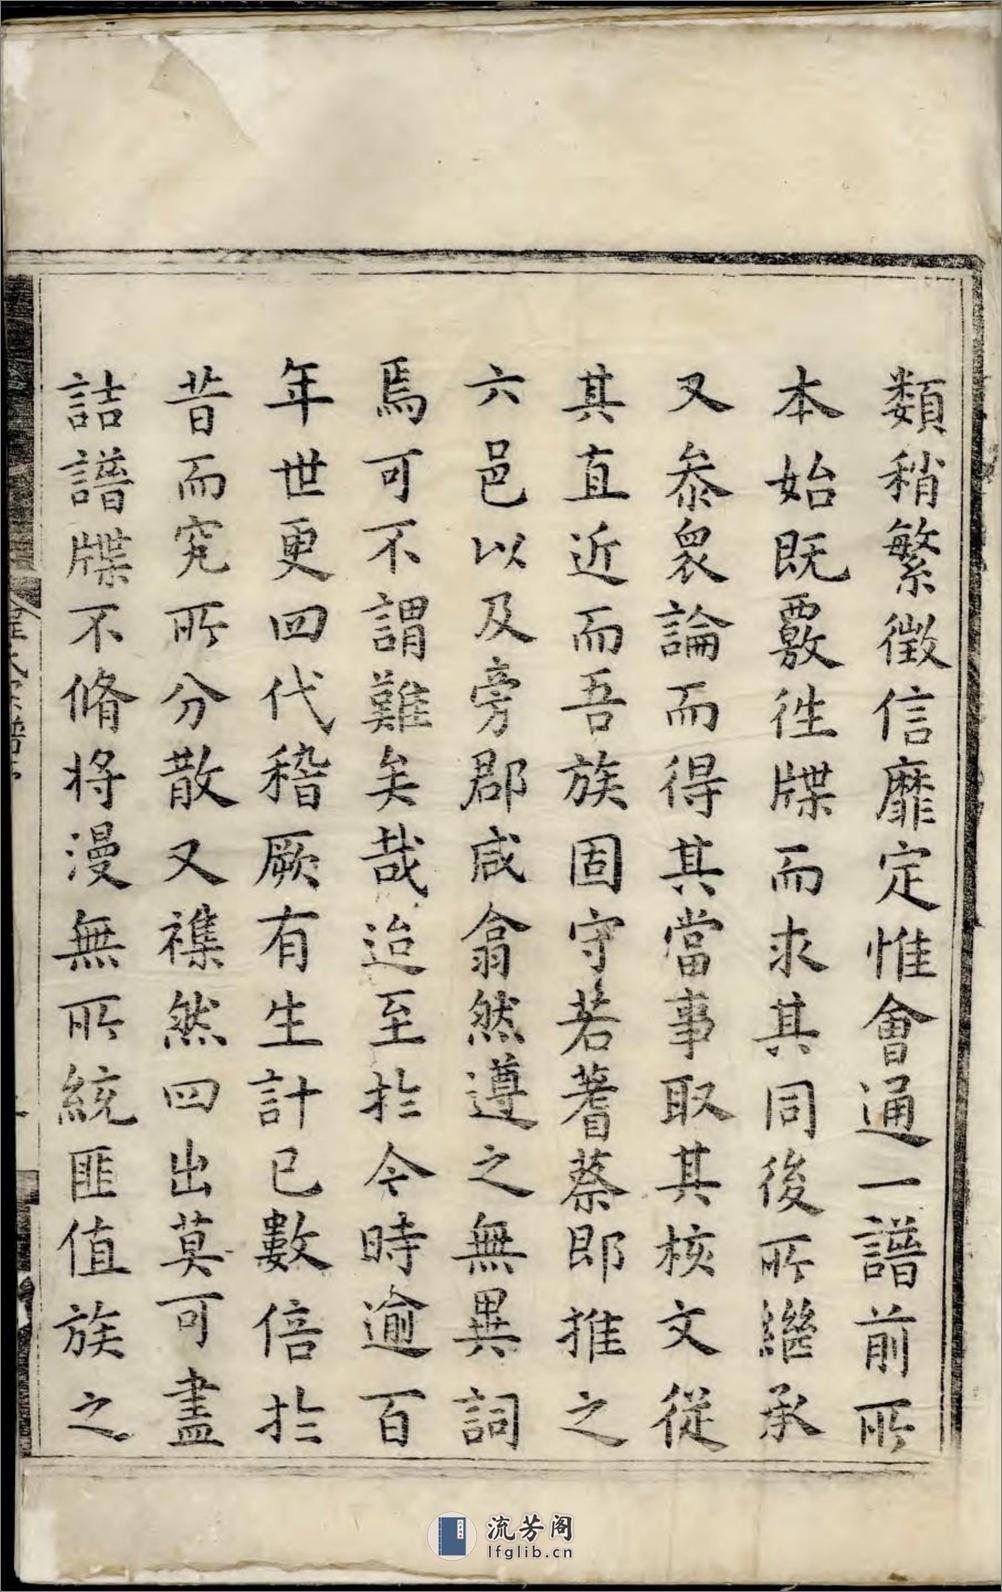 類稍繁徵信靡定惟會通一譜前所
本始既覈徃牒而求其同後所繼承
又叅衆論而得其當事取其核文從
其直近而吾族固守若蓍蔡即推之
六邑以及旁郡咸翕然遵之無異詞
焉可不謂難矣哉迨至於今時逾百
年世更四代稽厥有生計已數倍於
昔而究所分散又襍然四出莫可盡
詰譜牒不脩將漫無所統匪值族之
流芳阁
lfglib.cn